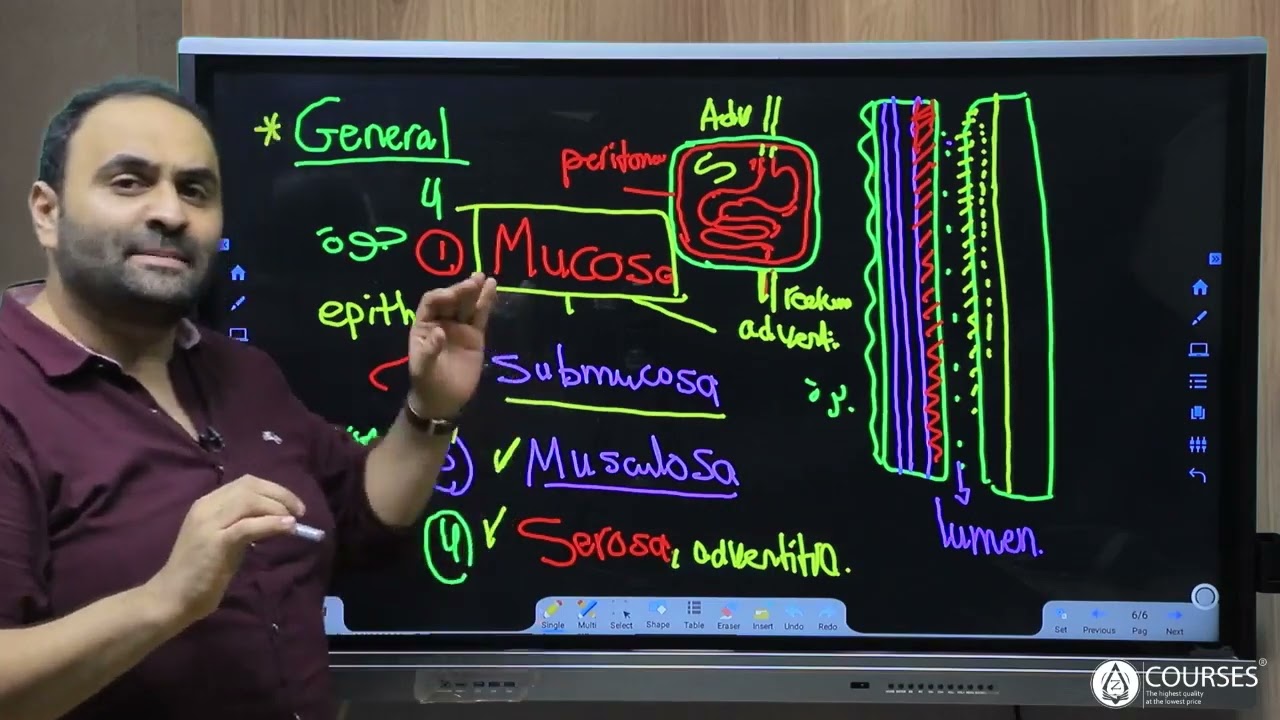 * General
Adv
peritone
4
① Mucosa
epith
rectum
adventi.
submucosa
✓ Musculosa
lumen.
④ ✓ Serosa, adventitia.
Single Multi Select Shape Table Eraser Insert Undo Redo
Set Previous 6/6 Pag Next
COURSES®
The highest quality
at the lowest price